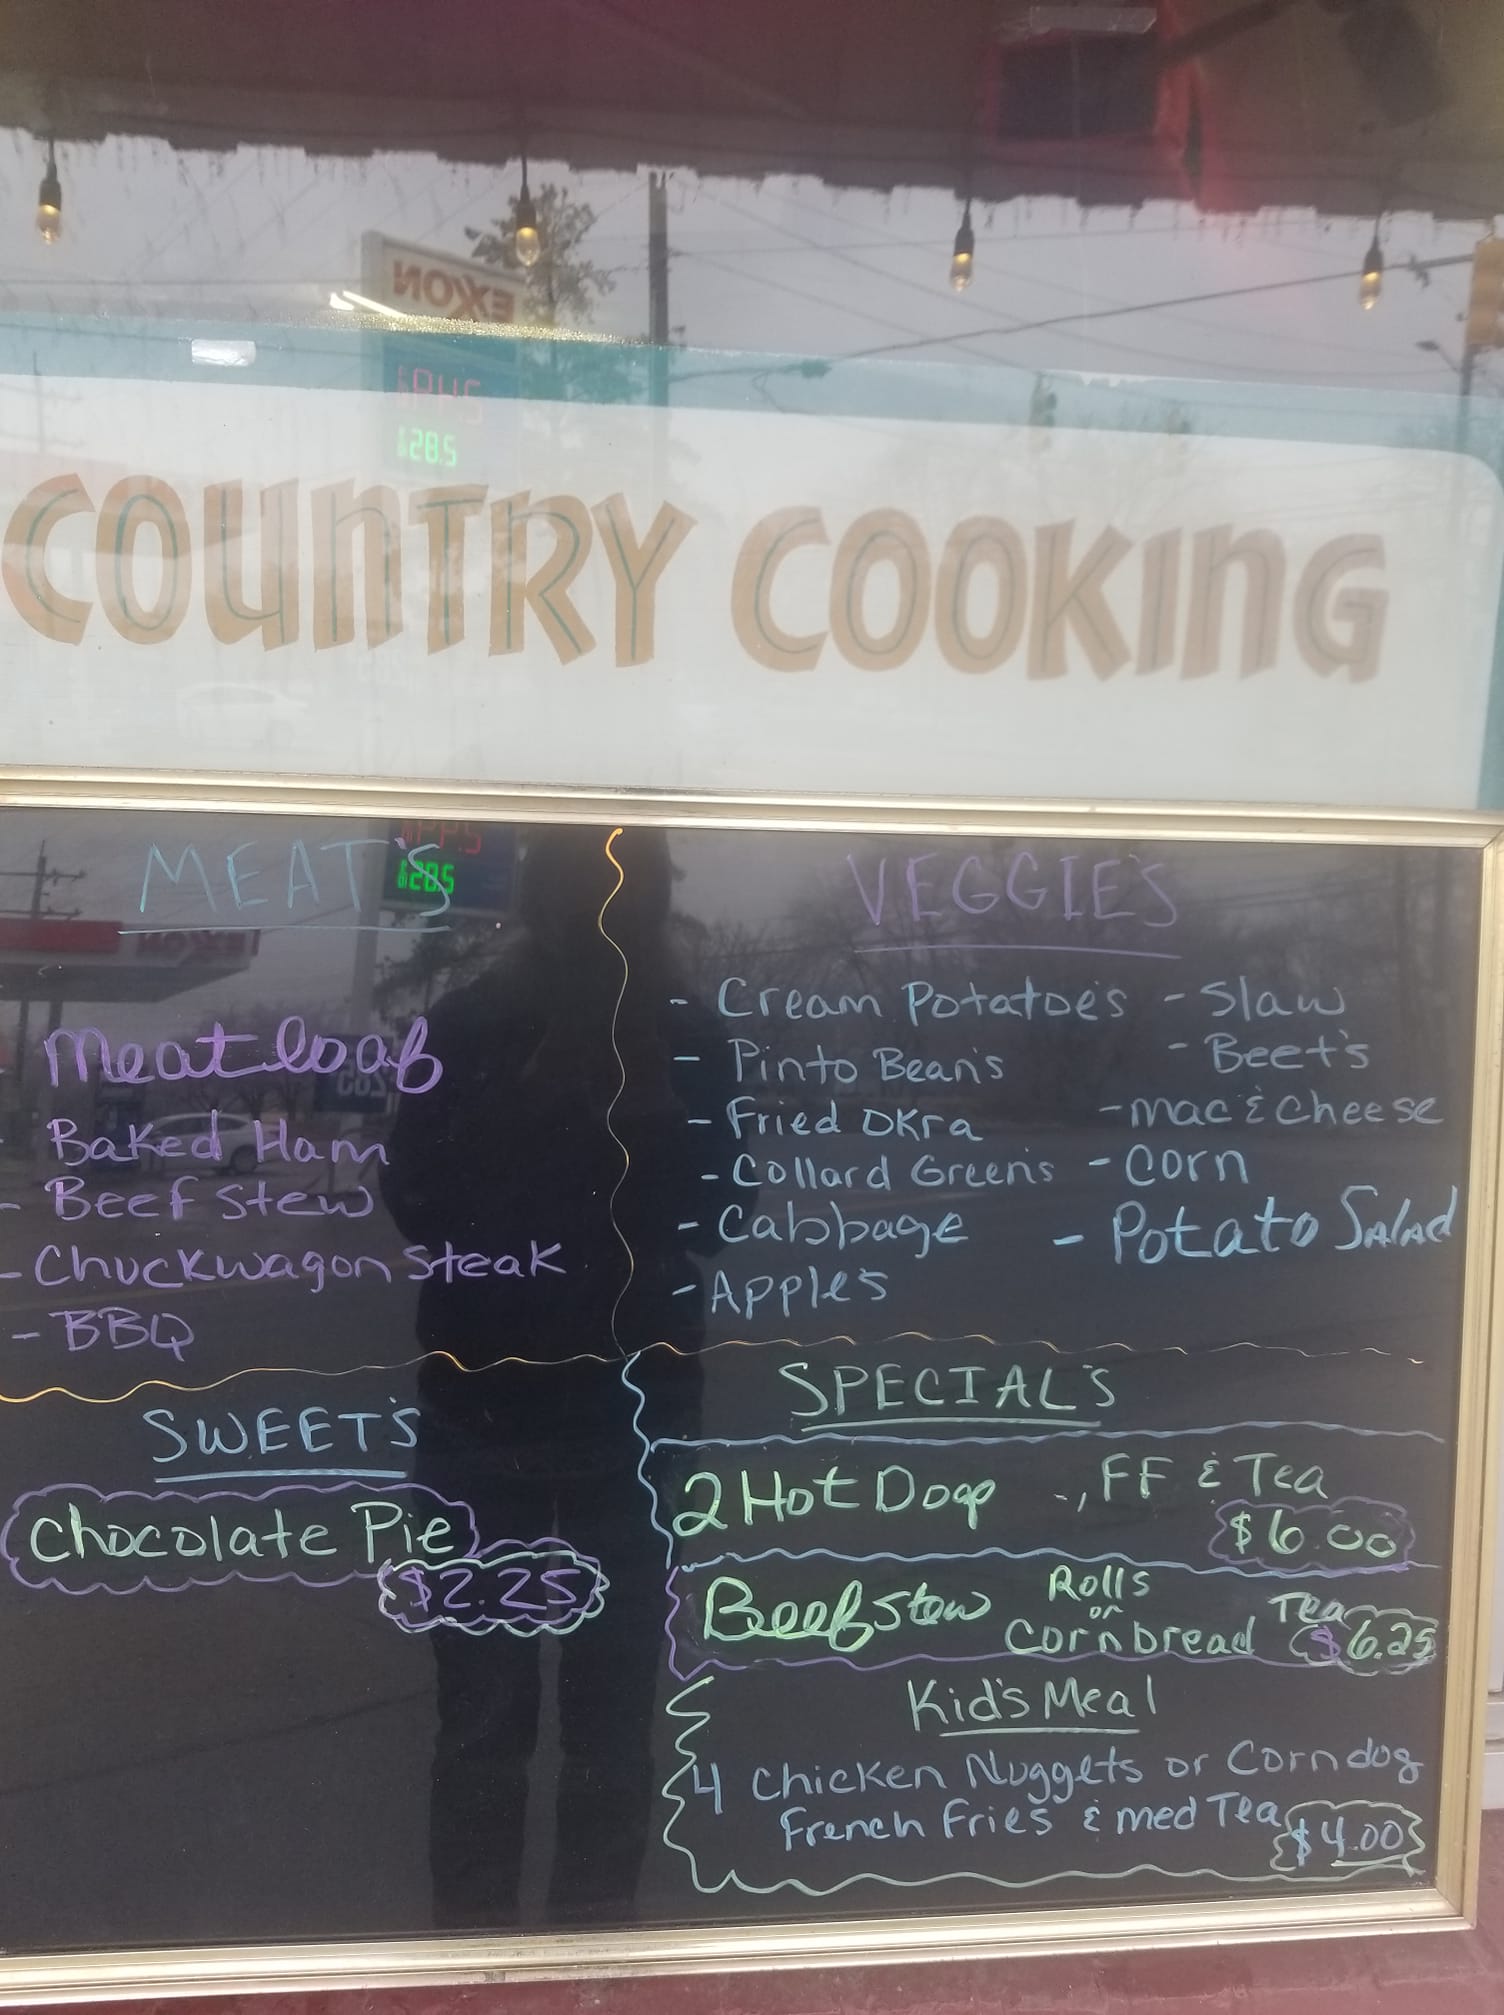 EXXON
COUNTRY COOKING
MEAT'S
- Meatloaf
- Baked Ham
- Beef Stew
- Chuckwagon Steak
- BBQ
VEGGIE'S
- Cream Potatoe's
- Pinto Bean's
- Fried Okra
- Collard Green's
- Cabbage
- Apple's
- Slaw
- Beet's
- Mac & Cheese
- Corn
- Potato Salad
SWEET'S
Chocolate Pie
$2.25
SPECIAL'S
2 Hot Dogs, FF & Tea
$6.00
Beef Stew Rolls or Cornbread Tea $6.25
Kid's Meal
4 Chicken Nuggets or Corndog
French Fries & med Tea
$4.00